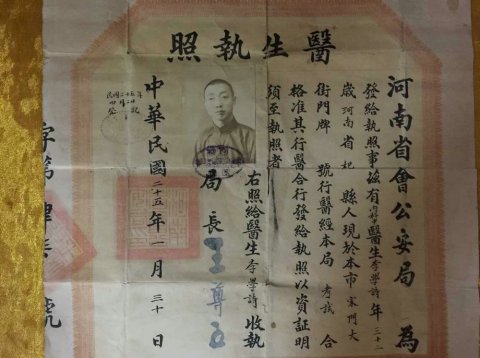 醫生執照
河南省會公安局 為
發給執照事茲有內科中醫生李學詩年三十二
歲河南省杞縣人現於本市宋門大
街門牌 號行醫經本局考試合
格准其行醫合行發給執照以資証明
須至執照者
右照給醫生李學詩收執
局長王尊五
中華民國二十五年一月三十日
字第 肆 號